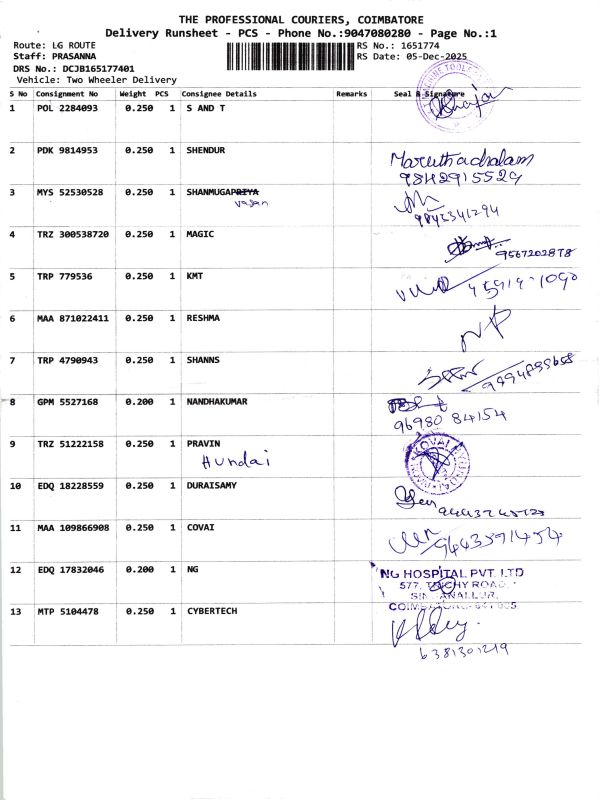 THE PROFESSIONAL COURIERS, COIMBATORE
Delivery Runsheet - PCS - Phone No.:9047080280 - Page No.:1
Route: LG ROUTE RS No.: 1651774
Staff: PRASANNA RS Date: 05-Dec-2025
DRS No.: DCJB165177401
Vehicle: Two Wheeler Delivery
S No Consignment No Weight PCS Consignee Details Remarks Seal & Signature
1 POL 2284093 0.250 1 S AND T
2 PDK 9814953 0.250 1 SHENDUR Maruthachalam
9842915529
3 MYS 52530528 0.250 1 SHANMUGAPRIYA
vasan 9843341294
4 TRZ 300538720 0.250 1 MAGIC
9567202878
5 TRP 779536 0.250 1 KMT
6 MAA 871022411 0.250 1 RESHMA
7 TRP 4790943 0.250 1 SHANNS
9994895658
8 GPM 5527168 0.200 1 NANDHAKUMAR
96980 84154
9 TRZ 51222158 0.250 1 PRAVIN
Hundai
10 EDQ 18228559 0.250 1 DURAISAMY
11 MAA 109866908 0.250 1 COVAI
9443591454
12 EDQ 17832046 0.200 1 NG
NG HOSPITAL PVT. LTD
577, TRICHY ROAD,
SINGANALLUR,
COIMBATORE-641 005
13 MTP 5104478 0.250 1 CYBERTECH
6381301219